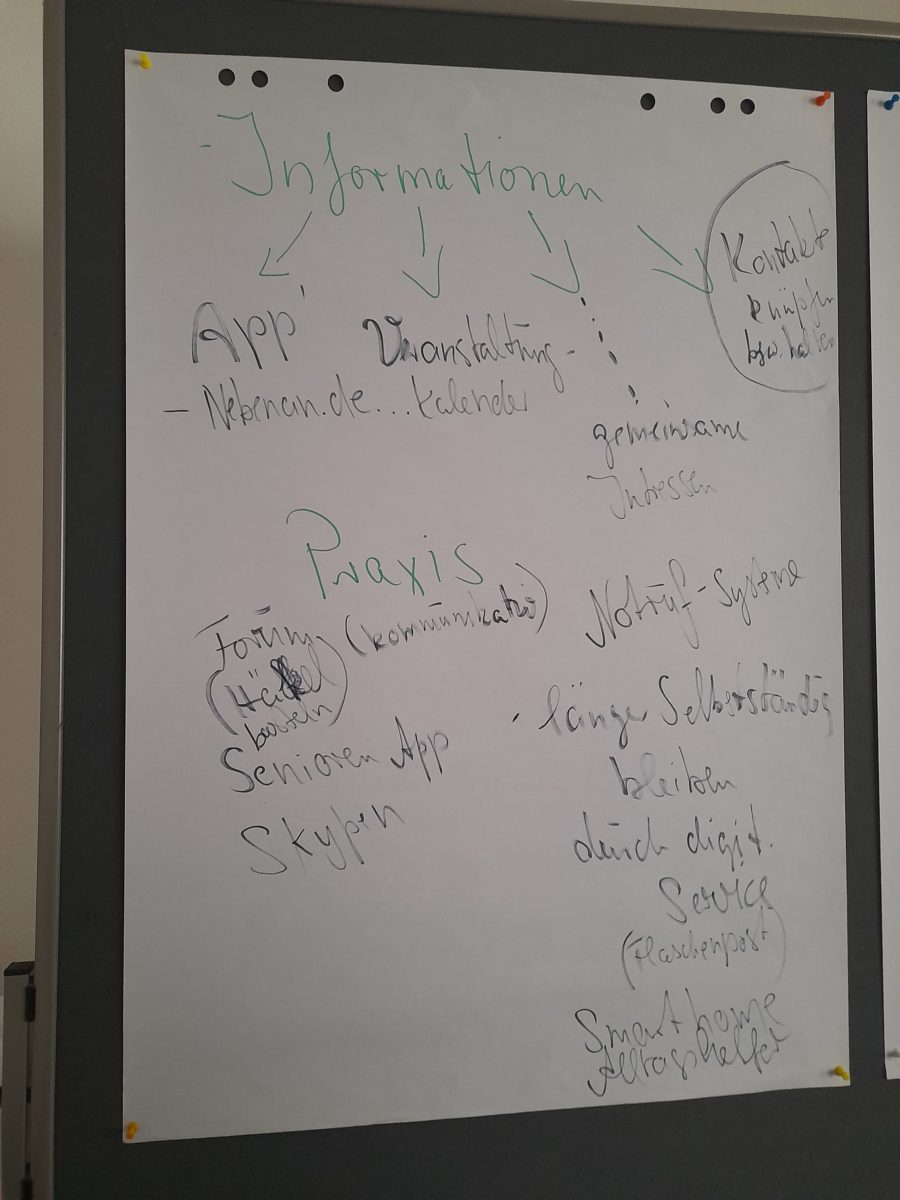 - Informationen
App
- Nebenan.de...
Veranstaltung-
kalender
gemeinsame
Intressen
Kontakte
knüpfen
bsw. halten
Praxis
Forum (kommunikativ)
(Häkel
basteln)
Senioren App
Skypen
Notruf-Systeme
länger Selberständig
bleiben
durch digit.
Service
(Flaschenpost)
Smart home
Alltagshelfer